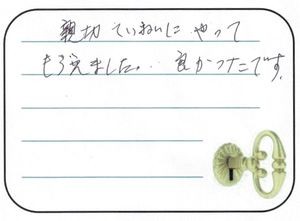 親切 ていねいに やって
もらえました。‥ 良かったです。